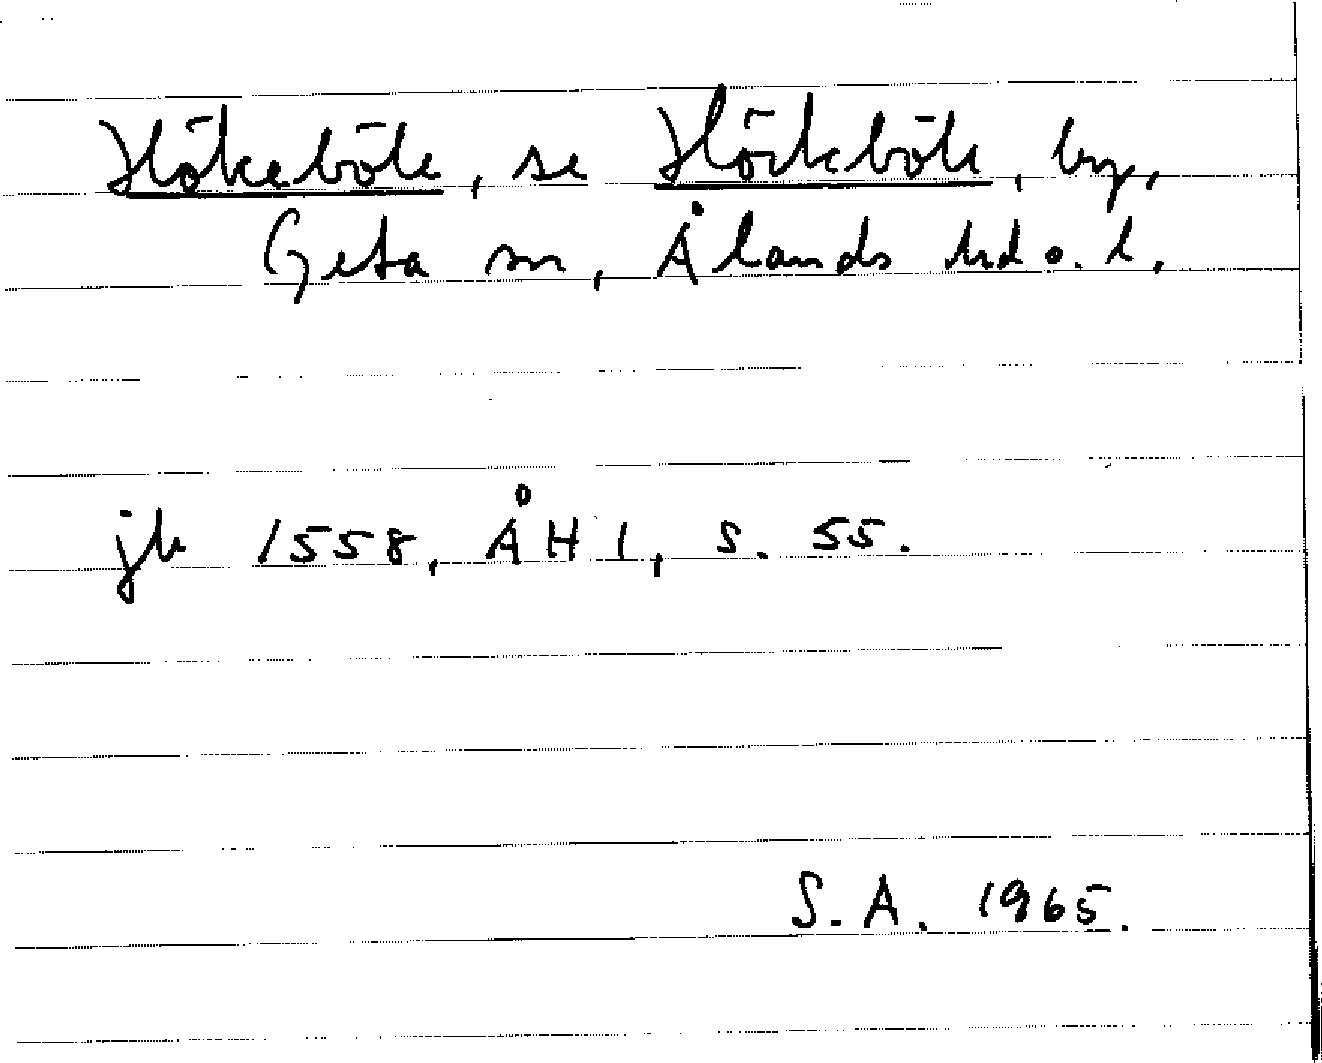 Hökeböle, se Hörkböle, by,
Geta sn, Ålands hd o. l.
jb 1558, ÅH 1, s. 55.
S. A. 1965.